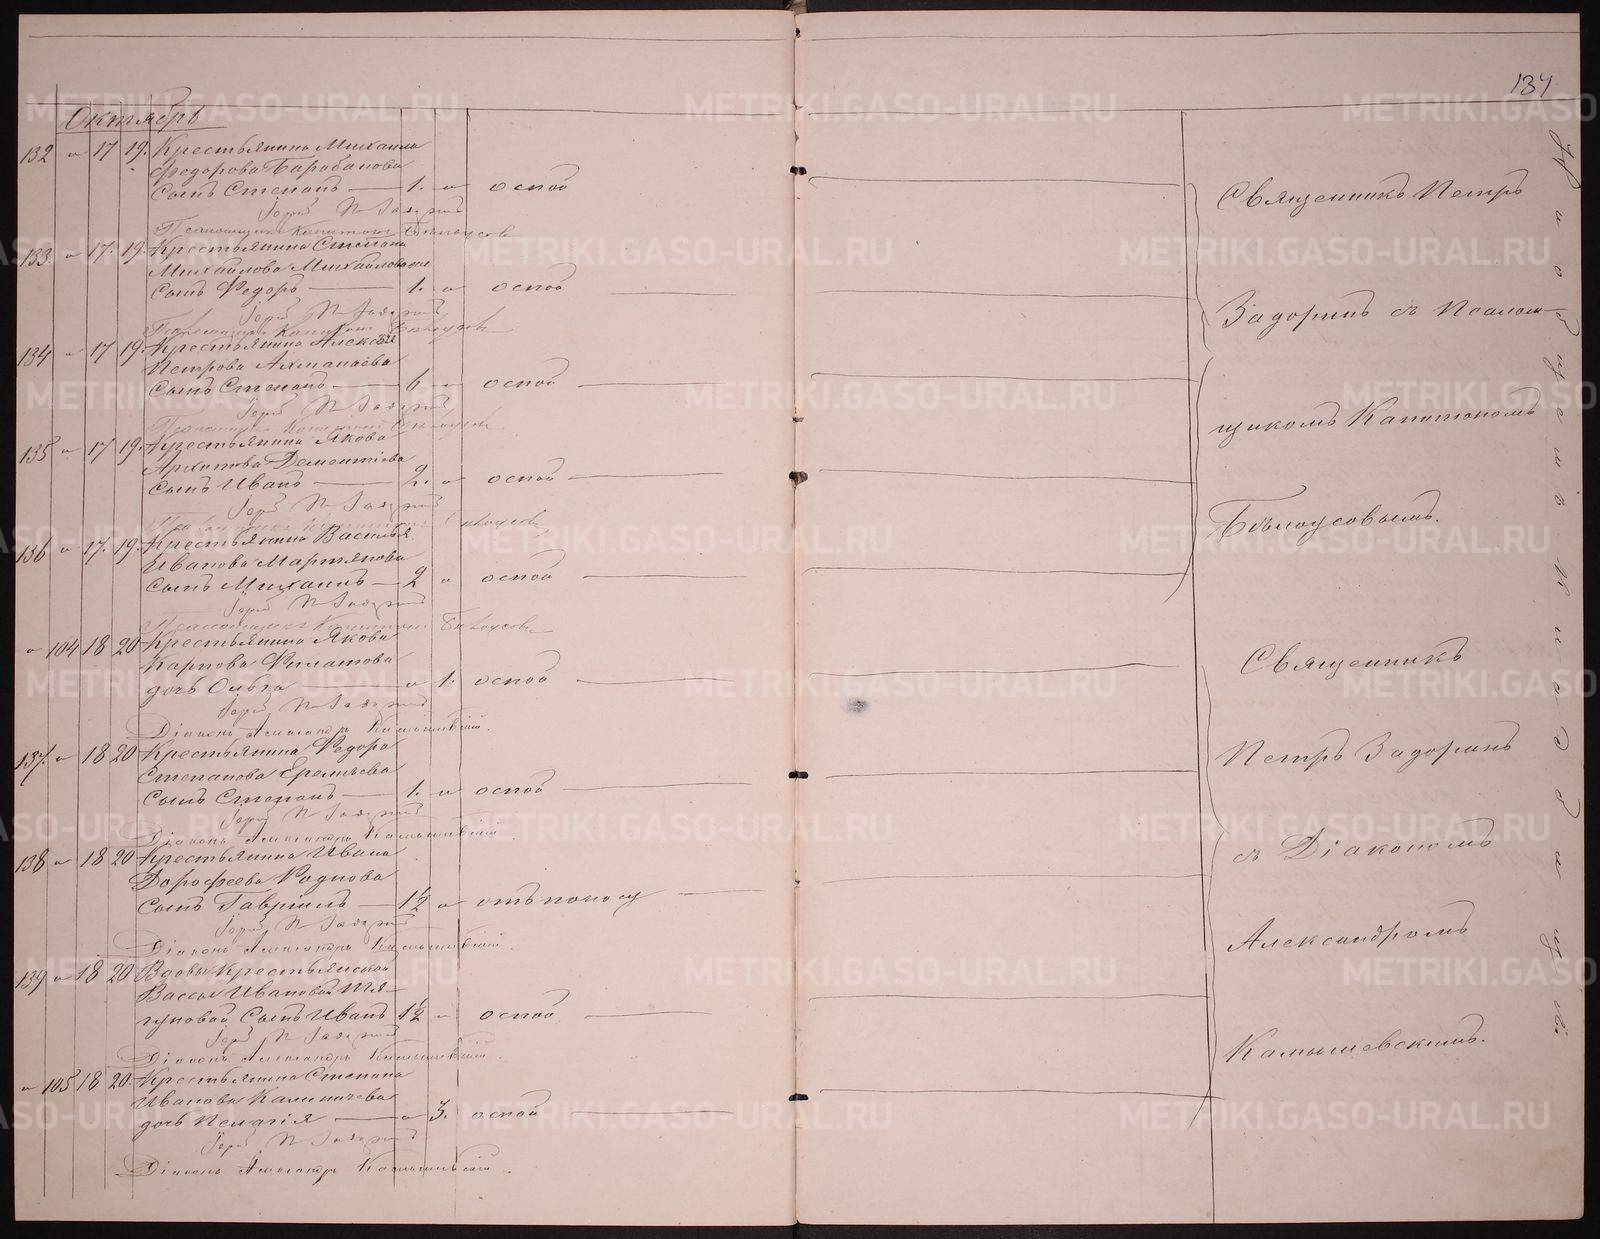 134
Октябрь
132 " 17 19. Крестьянина Михаила
Федорова Барабанова
сынъ Степанъ — 1. " оспой
Іерей П. Задоринъ
Псаломщикъ Капитонъ Бѣлоусовъ
133. " 17. 19. Крестьянина Степана
Михайлова Михайлова
сынъ Федоръ — 1. " оспой
Іерей П. Задоринъ
Псаломщикъ Капитонъ Бѣлоусовъ
134 " 17 19. Крестьянина Алексѣя
Петрова Ахманаева
сынъ Степанъ — 6 " оспой
Іерей П. Задоринъ
Псаломщикъ Капитонъ Бѣлоусовъ
135 " 17 19. Крестьянина Якова
Архипова Дементіева
сынъ Иванъ — 2. " оспой
Іерей П. Задоринъ
Псаломщикъ Капитонъ Бѣлоусовъ
136 " 17. 19. Крестьянина Василья
Иванова Мартянова
сынъ Михаилъ — 2 " оспой
Іерей П. Задоринъ
Псаломщикъ Капитонъ Бѣлоусовъ
" 104 18 20 Крестьянина Якова
Карпова Филатова
дочь Ольга — " 1. оспой
Іерей П. Задоринъ
Діаконъ Александръ Камышевскій.
137. " 18 20 Крестьянина Федора
Степанова Еремѣева
сынъ Степанъ — 1. " оспой
Іерей П. Задоринъ
Діаконъ Александръ Камышевскій.
138 " 18 20 Крестьянина Ивана
Дорофеева Роднова
сынъ Гавріилъ — 1½ " отъ поносу
Іерей П. Задоринъ
Діаконъ Александръ Камышевскій.
139 " 18 20 Вдовы Крестьянской
Вассы Ивановой Тя-
гуновой сынъ Иванъ 1½ " оспой
Іерей П. Задоринъ
Діаконъ Александръ Камышевскій.
" 105 18 20. Крестьянина Степана
Иванова
дочь Пелагія — " 3. оспой
Іерей П. Задоринъ
Діаконъ Александръ Камышевскій.
Священникъ Петръ
Задоринъ съ Псалом-
щикомъ Капитономъ
Бѣлоусовымъ.
Священникъ
Петръ Задоринъ
съ Діакономъ
Александромъ
Камышевскимъ.
METRIKI.GASO-URAL.RU